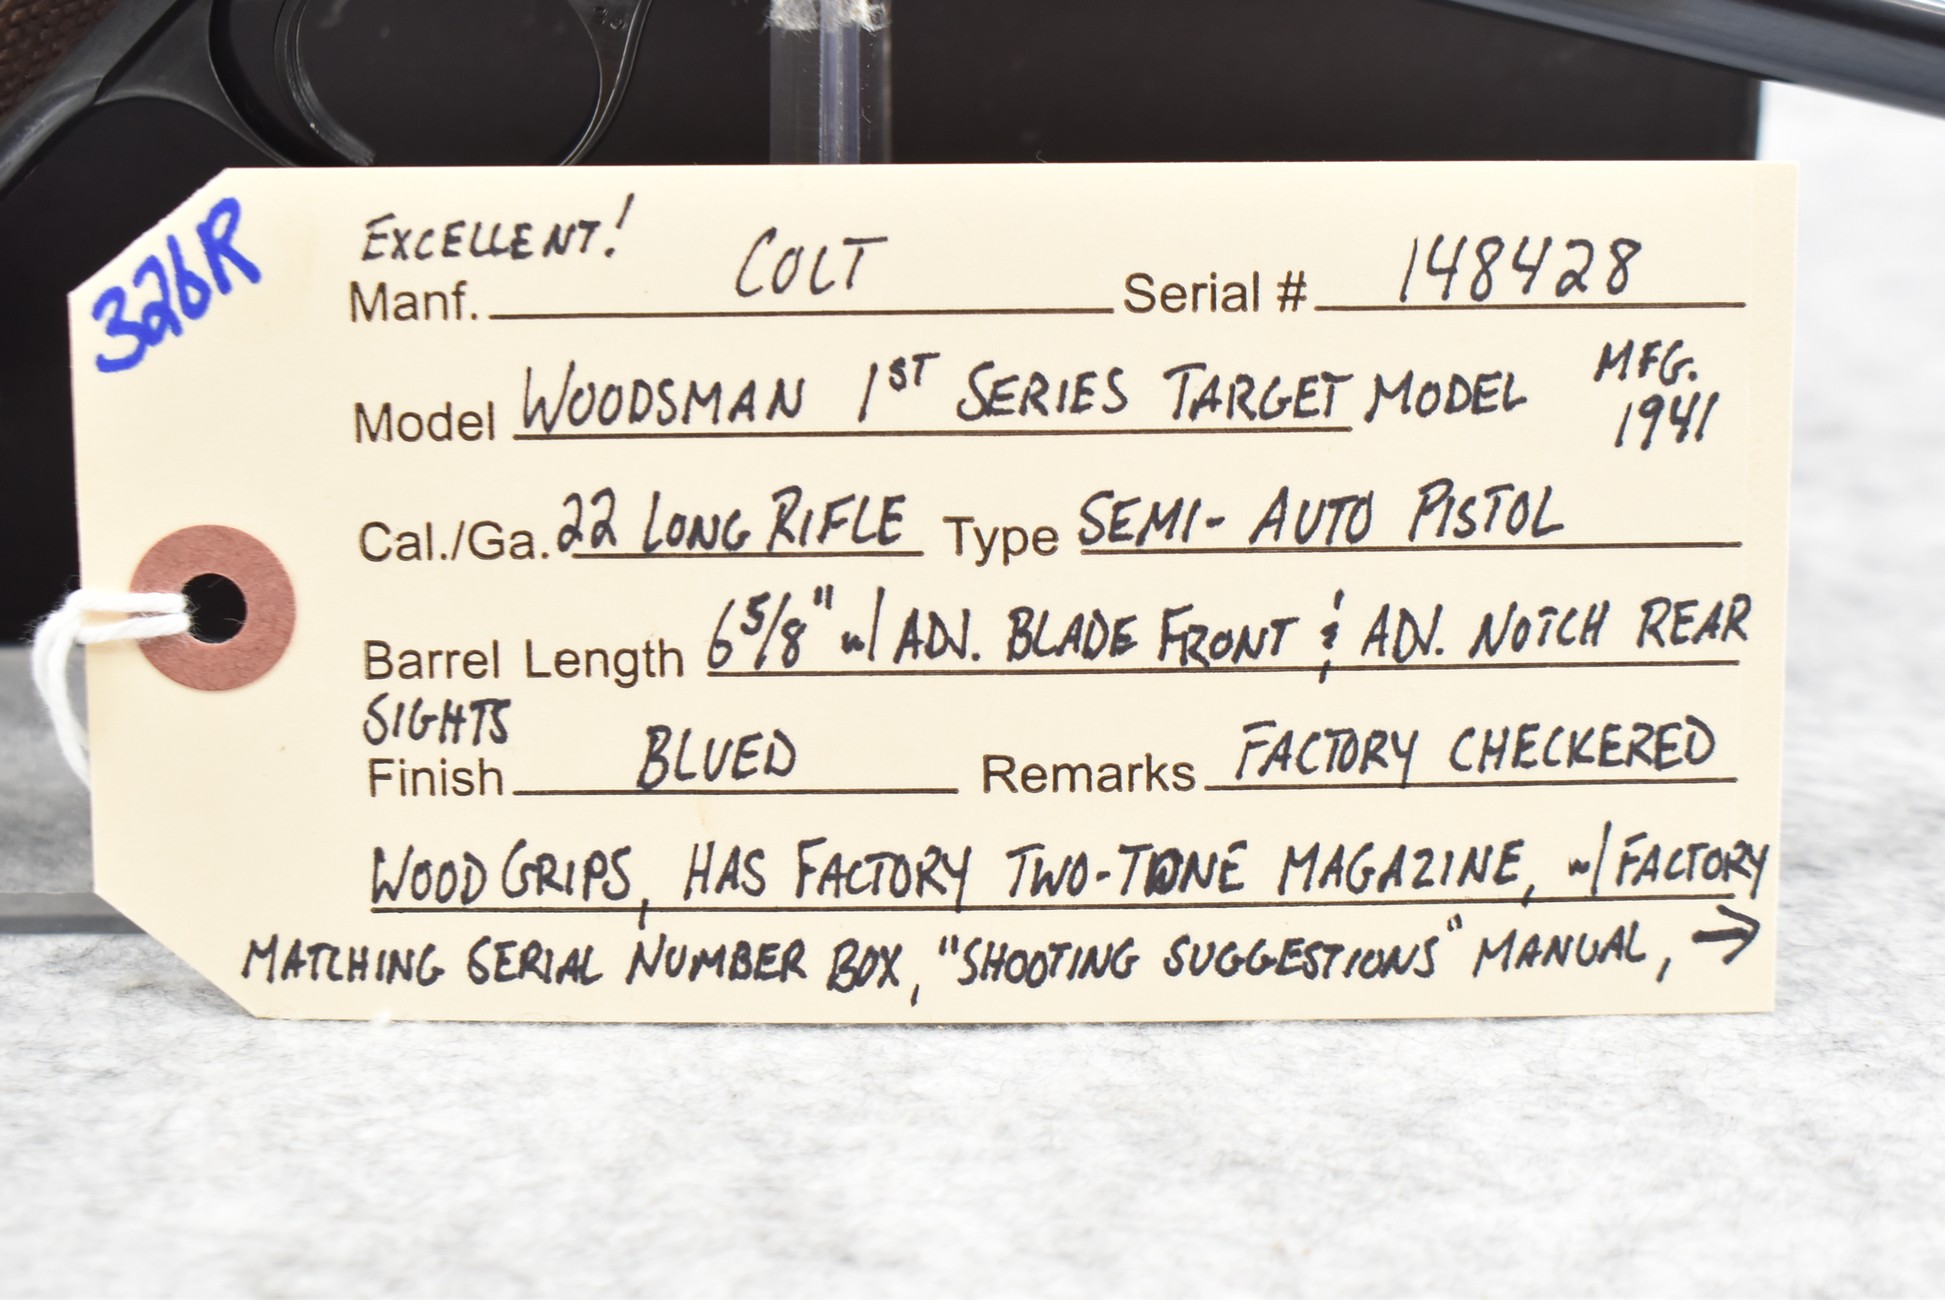 326R
EXCELLENT!
Manf. COLT Serial # 148428
Model WOODSMAN 1ST SERIES TARGET MODEL MFG. 1941
Cal./Ga. 22 LONG RIFLE Type SEMI-AUTO PISTOL
Barrel Length 6 5/8" w/ ADJ. BLADE FRONT & ADJ. NOTCH REAR
SIGHTS
Finish BLUED Remarks FACTORY CHECKERED
WOOD GRIPS, HAS FACTORY TWO-TONE MAGAZINE, w/ FACTORY
MATCHING SERIAL NUMBER BOX, "SHOOTING SUGGESTIONS" MANUAL, →